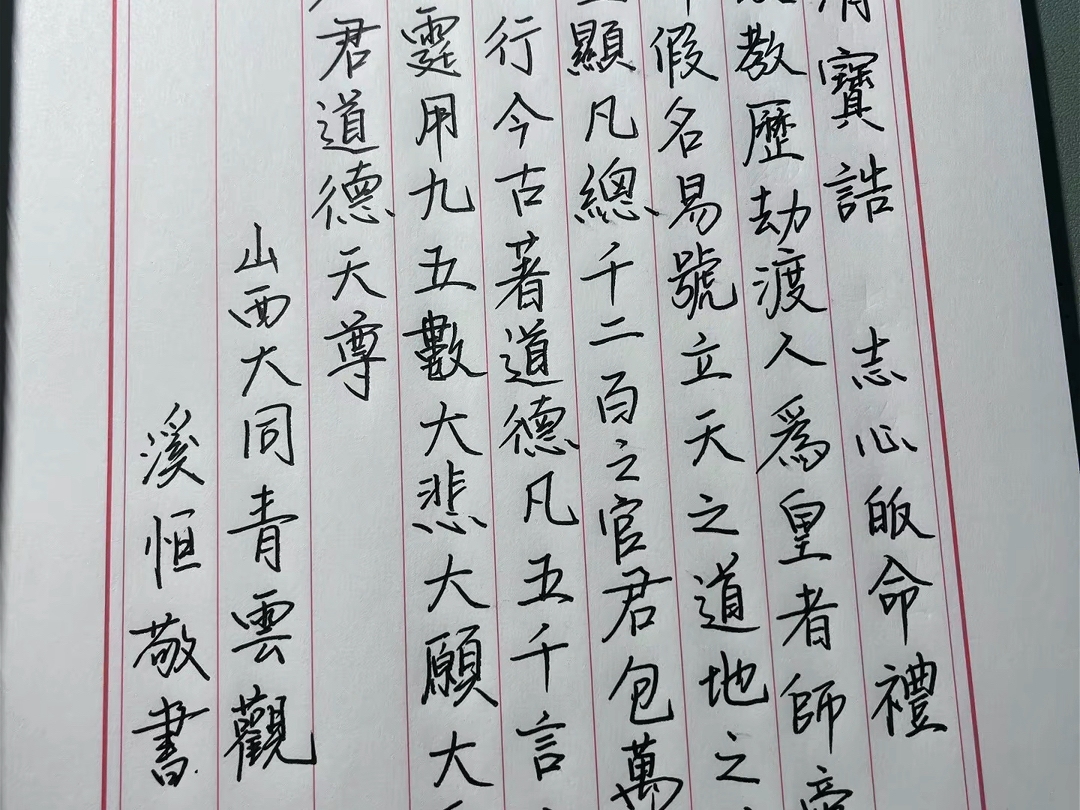 清寶誥　志心皈命禮
教歷劫渡人爲皇者師帝
假名易號立天之道地之
顯凡總千二百之官君包萬
行今古著道德凡五千言
霆用九五數大悲大願大
君道德天尊
山西大同青雲觀
溪恒敬書